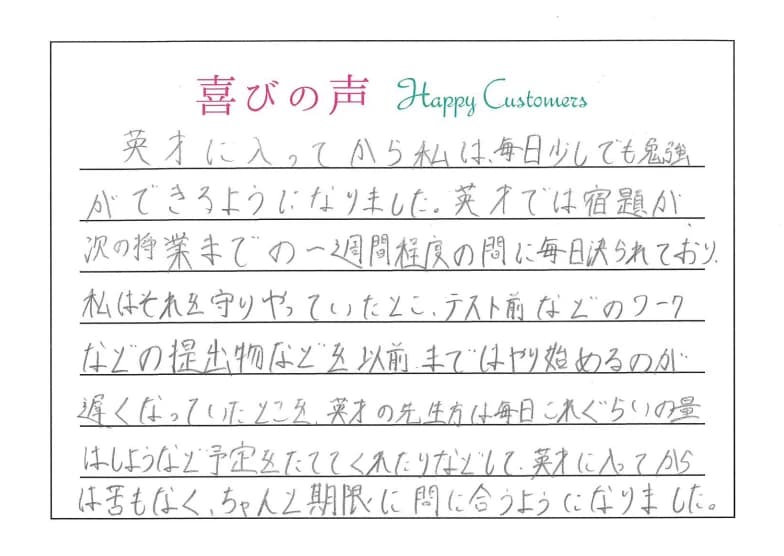 喜びの声 Happy Customers
英才に入ってから私は、毎日少しでも勉強
ができるようになりました。英才では宿題が
次の授業までの一週間程度の間に毎日決られており、
私はそれを守りやっていたところ、テスト前などのワーク
などの提出物などを以前まではやり始めるのが
遅くなっていたところを、英才の先生方は毎日これぐらいの量
はしようなど予定をたててくれたりなどして、英才に入ってから
は苦もなく、ちゃんと期限に間に合うようになりました。